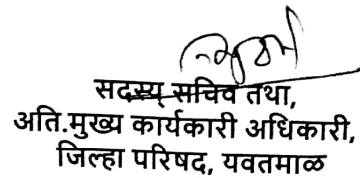 सदस्य सचिव तथा,
अति.मुख्य कार्यकारी अधिकारी,
जिल्हा परिषद, यवतमाळ